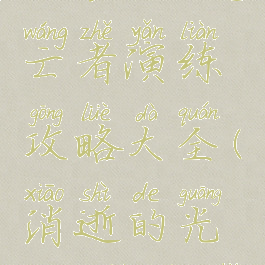 wáng zhě yǎn liàn
亡者演练
gōng lüè dà quán
攻略大全(
xiāo shì de guāng
消逝的光